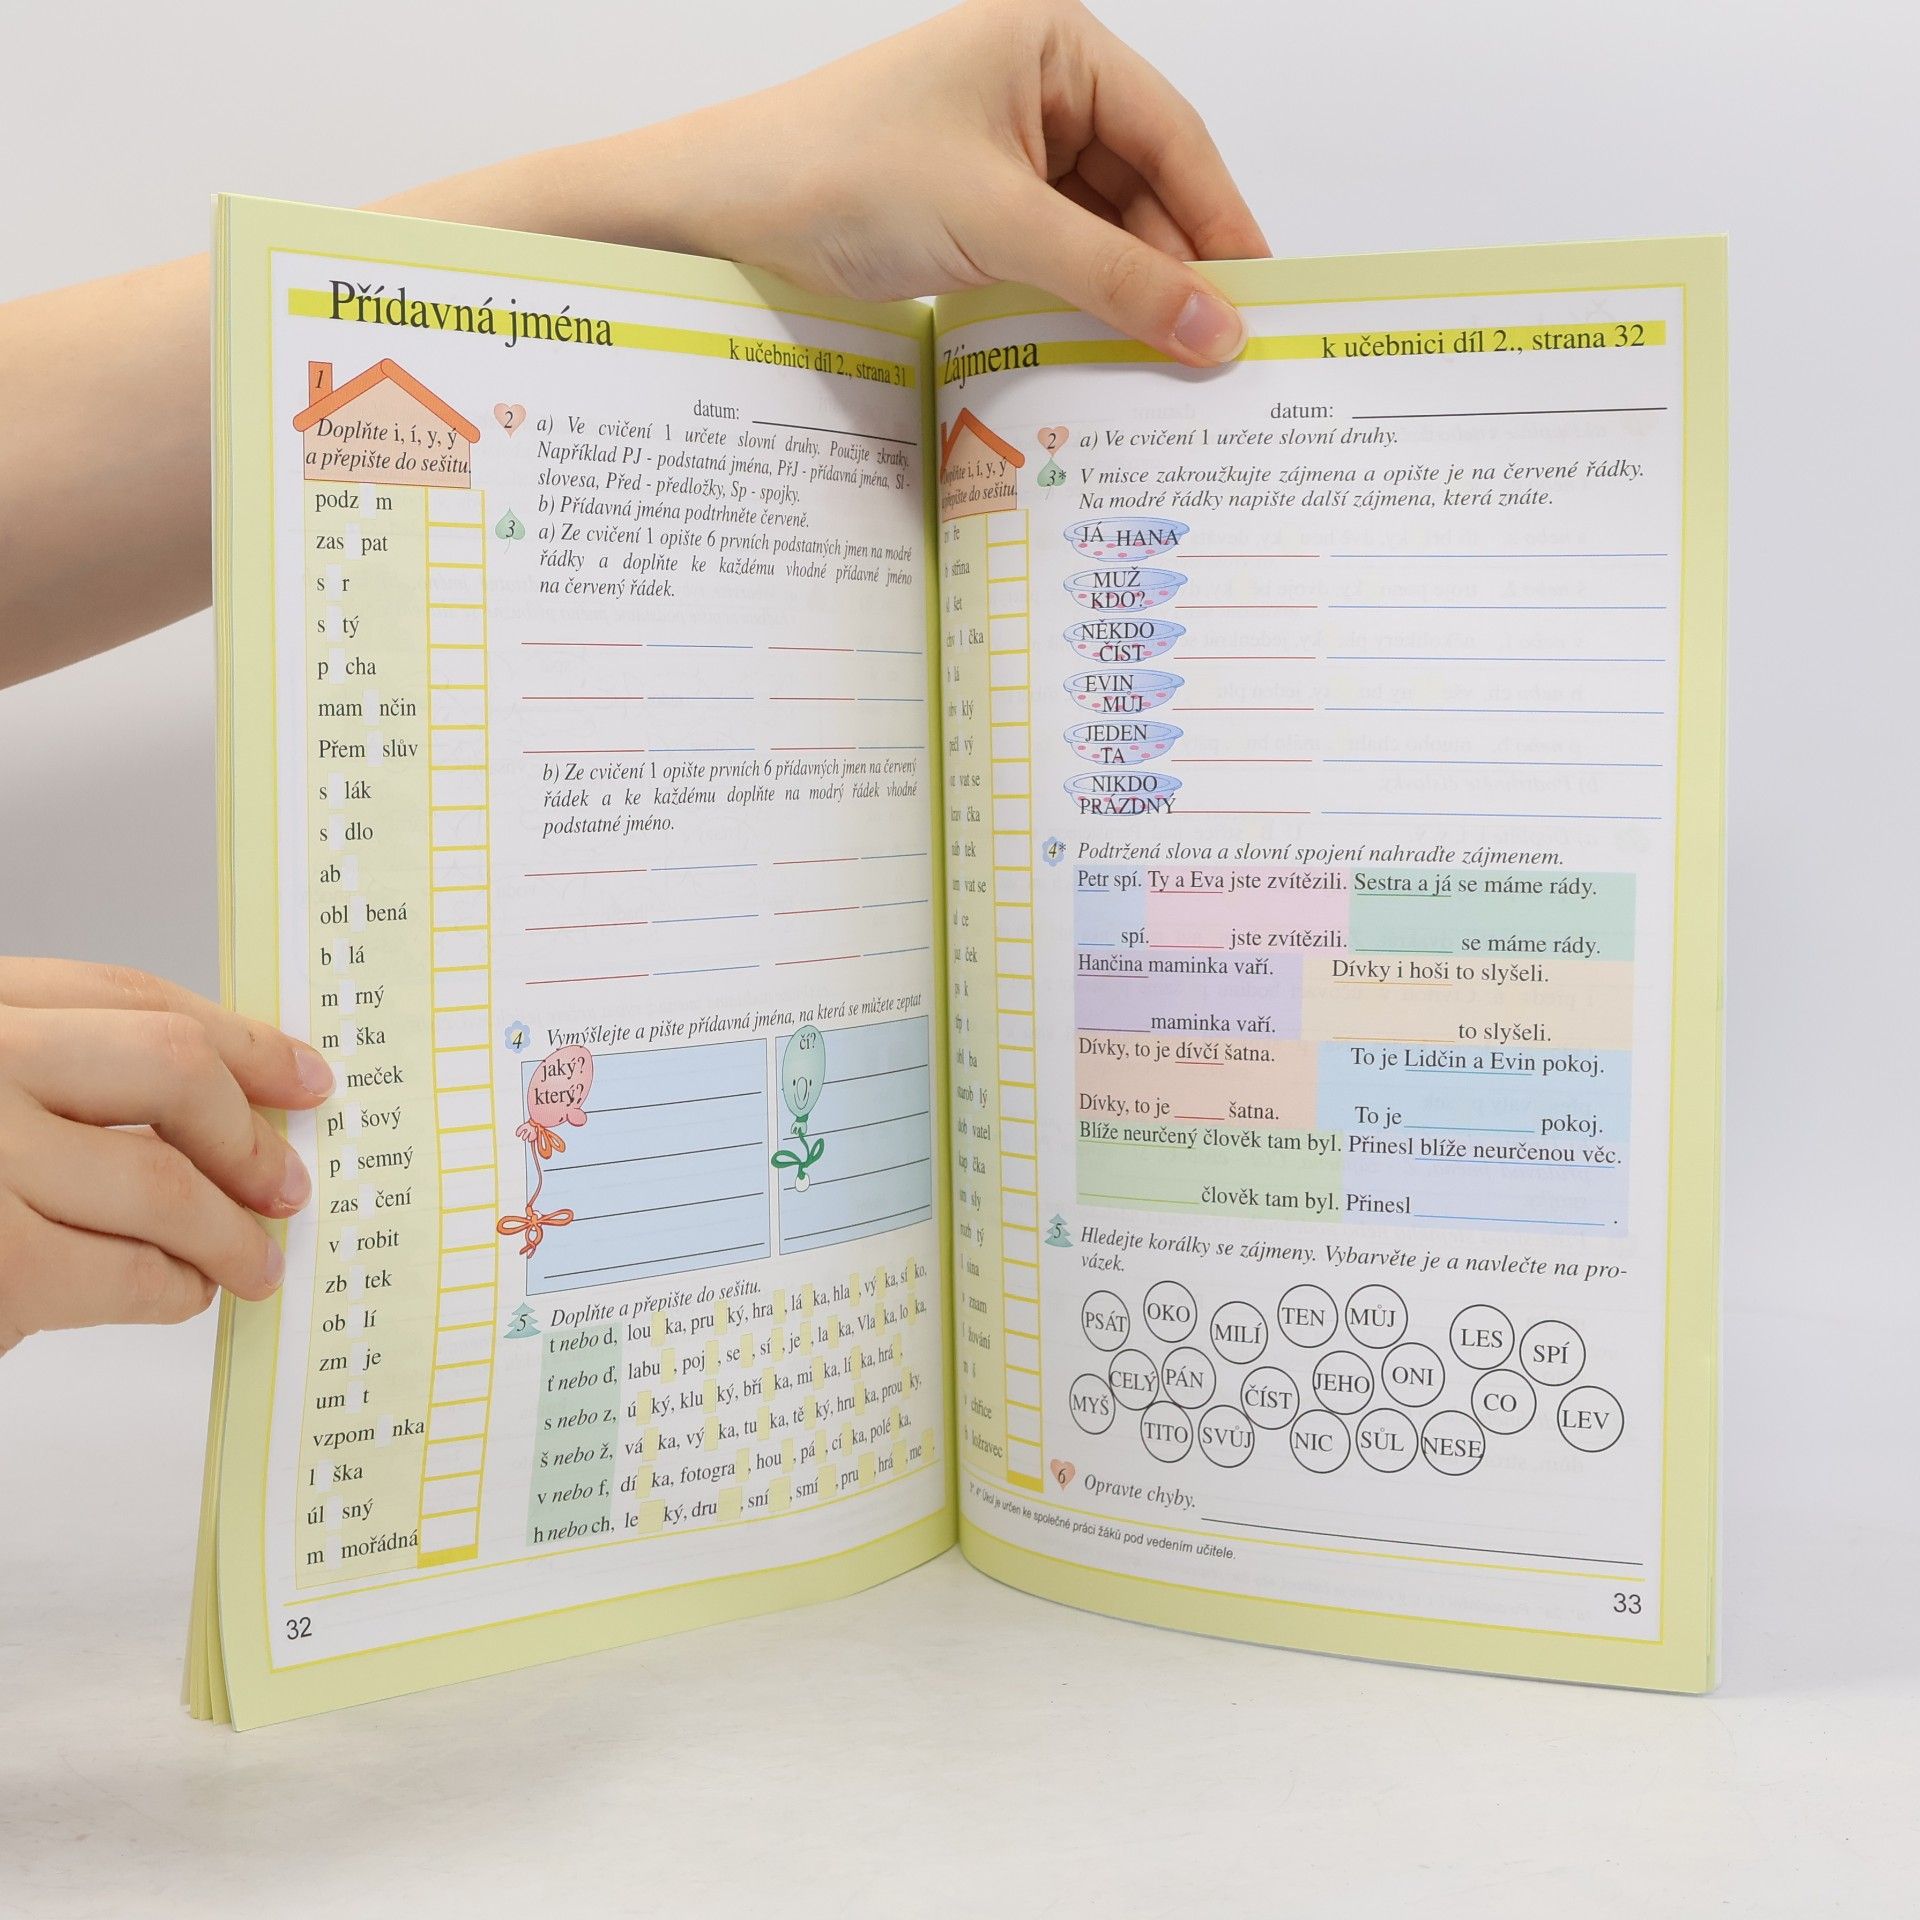 Přídavná jména
k učebnici díl 2., strana 31
datum:
1
Doplňte i, í, y, ý
a přepište do sešitu.
podz m
zas pat
s r
s tý
p cha
mam nčin
Přem slův
s lák
s dlo
ab
obl bená
b lá
m rný
m ška
meček
pl šový
p semný
zas čení
v robit
zb tek
ob lí
zm je
um t
vzpom nka
l ška
úl sný
m mořádná
2 a) Ve cvičení 1 určete slovní druhy. Použijte zkratky.
Například PJ - podstatná jména, PřJ - přídavná jména, Sl -
slovesa, Před - předložky, Sp - spojky.
b) Přídavná jména podtrhněte červeně.
3 a) Ze cvičení 1 opište 6 prvních podstatných jmen na modré
řádky a doplňte ke každému vhodné přídavné jméno
na červený řádek.
b) Ze cvičení 1 opište prvních 6 přídavných jmen na červený
řádek a ke každému doplňte na modrý řádek vhodné
podstatné jméno.
4 Vymýšlejte a pište přídavná jména, na která se můžete zeptat
jaký?
který?
čí?
5 Doplňte a přepište do sešitu.
t nebo d, lou ka, pru ký, hra , lá ka, hla , vý ka, sí ko,
ť nebo ď, labu , poj , se , sí , je , la ka, Vla ka, lo ka,
s nebo z, ú ký, klu ký, bří ka, mi ka, lí ka, hrá ,
š nebo ž, vá ka, vý ka, tu ka, tě ký, hru ka, prou ky,
v nebo f, dí ka, fotogra , hou , pá , cí ka, polé ka,
h nebo ch, le ký, dru , sní , smí , pru , hrá , me .
32
Zájmena
k učebnici díl 2., strana 32
datum:
Doplňte i, í, y, ý
a přepište do sešitu.
střina
šet
l čka
b lá
klý
vý
vat se
čka
tek
vat se
ul ce
ček
p k
t
ba
lý
vatel
čka
sly
tý
l sina
znam
žování
chřice
ložravec
2 a) Ve cvičení 1 určete slovní druhy.
3* V misce zakroužkujte zájmena a opište je na červené řádky.
Na modré řádky napište další zájmena, která znáte.
JÁ HANA
MUŽ
KDO?
NĚKDO
ČÍST
EVIN
MŮJ
JEDEN
TA
NIKDO
PRÁZDNÝ
4* Podtržená slova a slovní spojení nahraďte zájmenem.
Petr spí. Ty a Eva jste zvítězili. Sestra a já se máme rády.
____ spí. ________ jste zvítězili. __________ se máme rády.
Hančina maminka vaří. Dívky i hoši to slyšeli.
________maminka vaří. _____________ to slyšeli.
Dívky, to je dívčí šatna. To je Lidčin a Evin pokoj.
Dívky, to je _____ šatna. To je ______________ pokoj.
Blíže neurčený člověk tam byl. Přinesl blíže neurčenou věc.
_____________ člověk tam byl. Přinesl ____________________ .
5 Hledejte korálky se zájmeny. Vybarvěte je a navlečte na pro-
vázek.
PSÁT OKO MILÍ TEN MŮJ LES SPÍ
MYŠ CELÝ PÁN ČÍST JEHO ONI CO LEV
TITO SVŮJ NIC SŮL NESE
6 Opravte chyby.
3*, 4* Úkol je určen ke společné práci žáků pod vedením učitele.
33